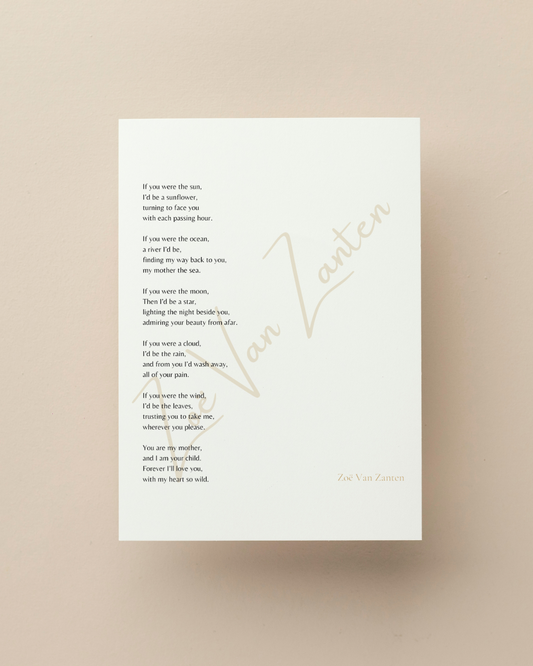 If you were the sun,
I'd be a sunflower,
turning to face you
with each passing hour.
If you were the ocean,
a river I'd be,
finding my way back to you,
my mother the sea.
If you were the moon,
Then I'd be a star,
lighting the night beside you,
admiring your beauty from afar.
If you were a cloud,
I'd be the rain,
and from you I'd wash away,
all of your pain.
If you were the wind,
I'd be the leaves,
trusting you to take me,
wherever you please.
You are my mother,
and I am your child.
Forever I'll love you,
with my heart so wild.
Zoë Van Zanten
Zoë Van Zanten